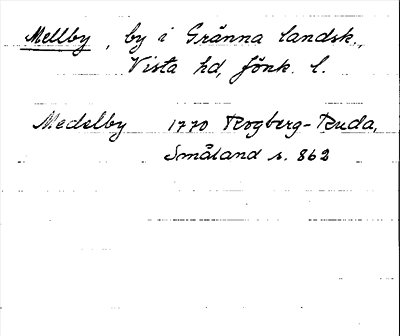 Mellby, by i Gränna landsk.,
Vista hd, Jönk. l.
Medelby 1770 Rogberg-Ruda,
Småland s. 862